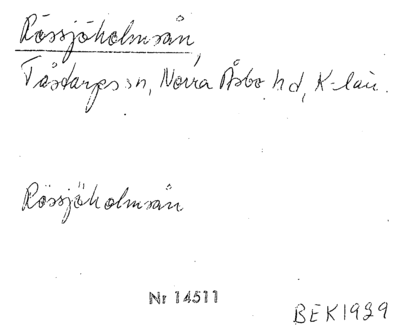 Rössjöholmsån,
Tåstarps sn, Norra Åsbo hd, K-län.
Rössjöholmsån
Nr 14511
BEK1929